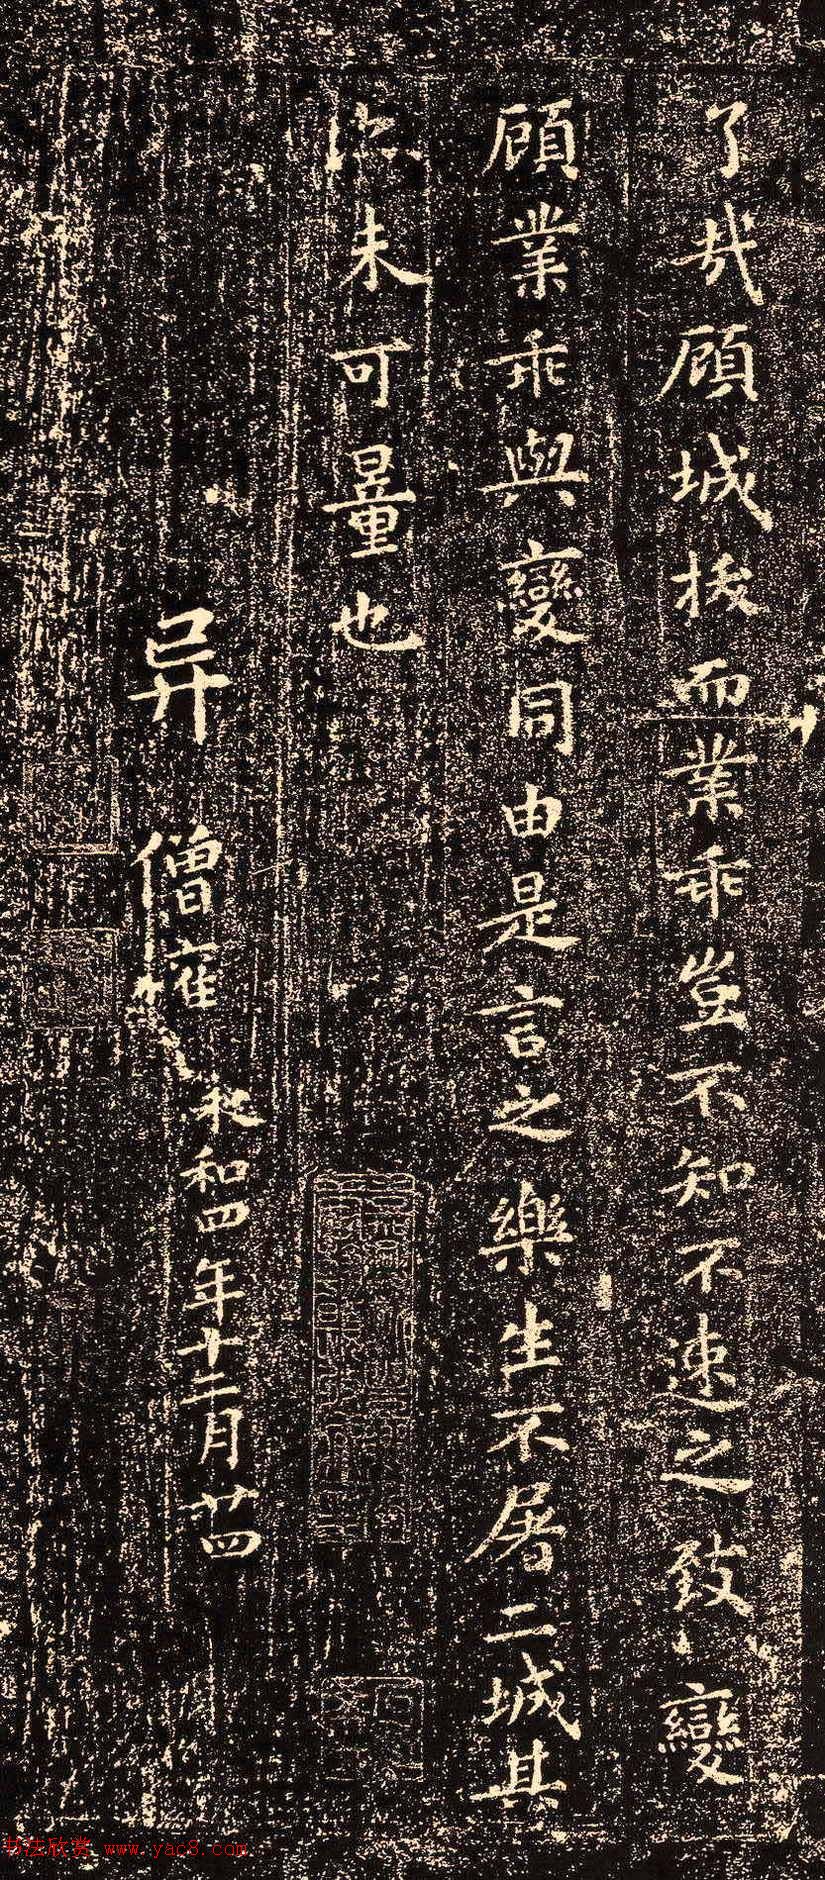 了哉顧城拔而業乖豈不知不速之致變
顧業乖與變同由是言之樂生不屠二城其
未可量也
异 僧權 永和四年十二月廿四
书法欣赏 www.yac8.com